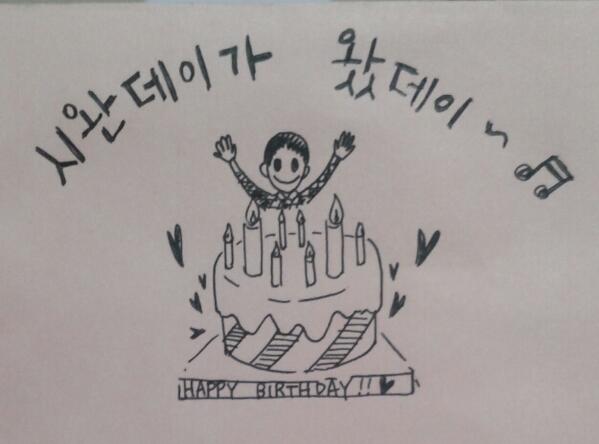 시완데이가 왔데이~♫
HAPPY BIRTHDAY!!♥